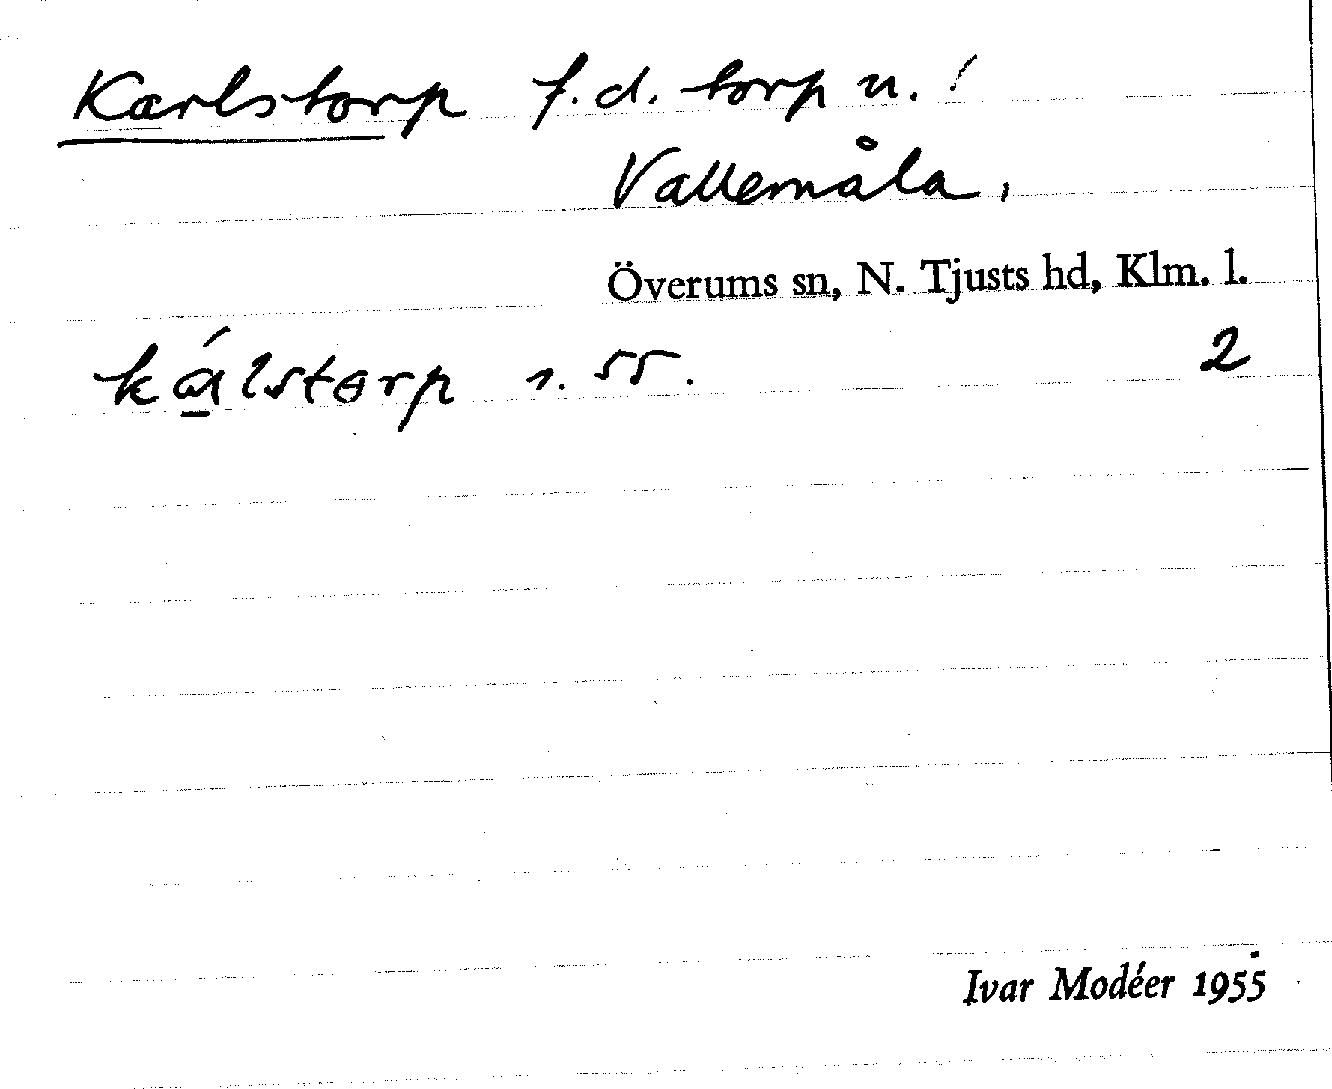 Karlstorp f.d. torp u. !
Vallemåla,
Överums sn, N. Tjusts hd, Klm. l.
kálstorp s. 55. 2
Ivar Modéer 1955